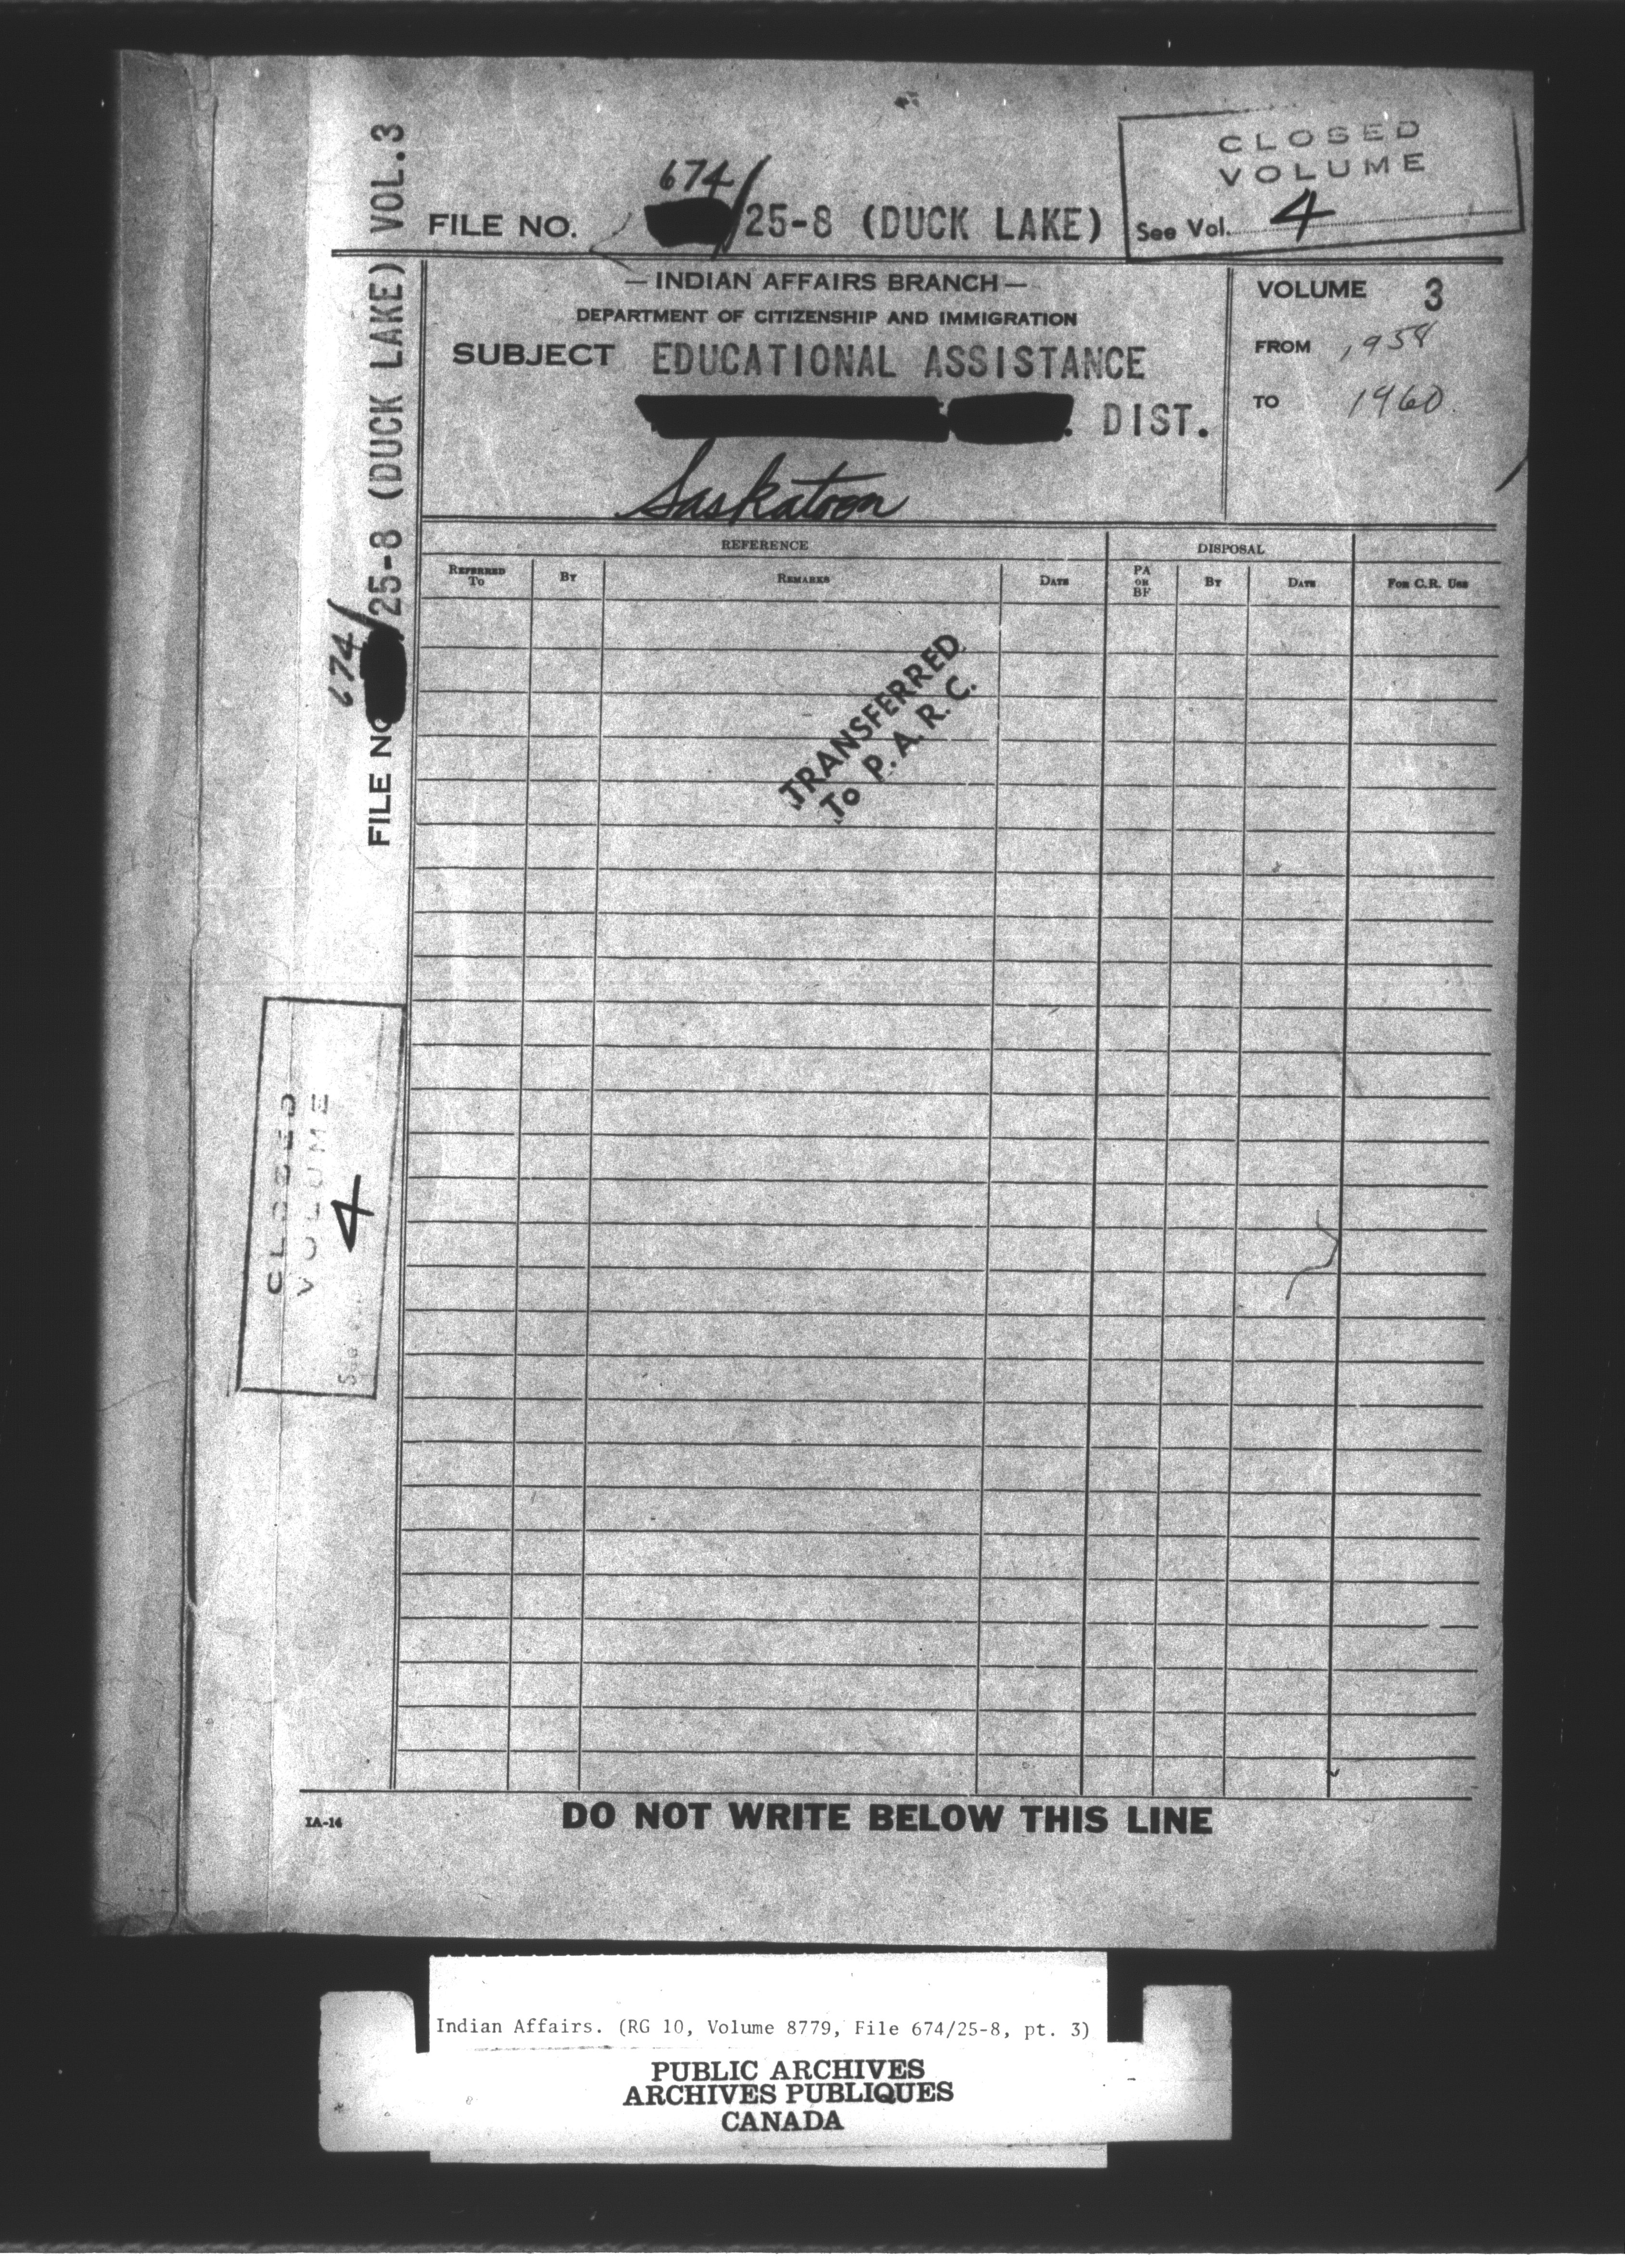 CLOSED
VOLUME
See Vol. 4
674/
FILE NO. /25-8 (DUCK LAKE)
— INDIAN AFFAIRS BRANCH —
DEPARTMENT OF CITIZENSHIP AND IMMIGRATION
SUBJECT EDUCATIONAL ASSISTANCE
. DIST.
Saskatoon
VOLUME 3
FROM 1958
TO 1960
REFERENCE
DISPOSAL
REFERRED TO
BY
REMARKS
DATE
PA OR BF
BY
DATE
FOR C.R. USE
TRANSFERRED
To P.A.R.C.
674/
FILE NO /25-8 (DUCK LAKE) VOL.3
CLOSED
VOLUME
See 4
IA-14
DO NOT WRITE BELOW THIS LINE
Indian Affairs. (RG 10, Volume 8779, File 674/25-8, pt. 3)
PUBLIC ARCHIVES
ARCHIVES PUBLIQUES
CANADA